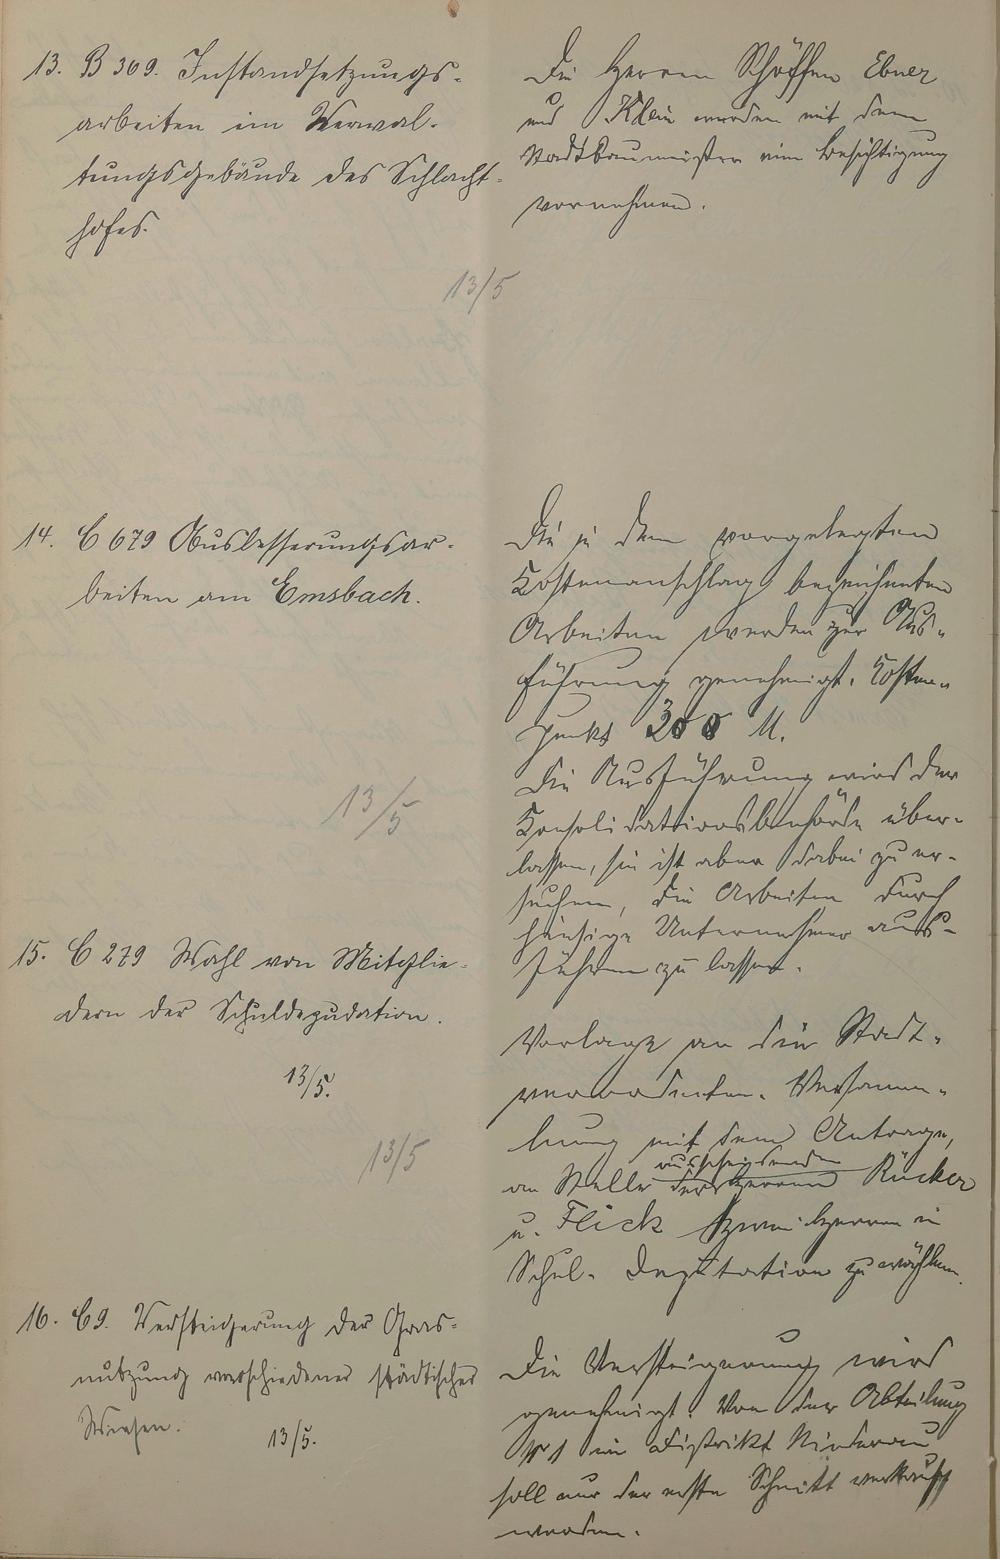 13. B 309. Instandsetzungs-
arbeiten im Verwal-
tungsgebäude des Schlacht-
hofes.
13/5
Die Herren Schöffen Ebner
und Klein werden mit dem
Stadtbaumeister eine Besichtigung
vornehmen.
14. C 679 Ausbesserungsar-
beiten am Emsbach.
13/5
Die in dem vorgelegten
Kostenanschlag bezeichneten
Arbeiten werden zur Aus-
führung genehmigt. Kosten-
punkt 300 M.
Die Ausführung wird der
Konsolidationsbehörde über-
lassen, sie ist aber dabei zu er-
suchen, die Arbeiten durch
hiesige Unternehmer aus-
führen zu lassen.
15. C 279 Wahl von Mitglie-
dern der Schuldeputation.
13/5.
13/5
Vorlage an die Stadt-
verordneten-Versamm-
lung mit dem Antrage,
an Stelle der ausscheidenden Herren Rücker
u. Flick zwei Herren in
Schul-Deputation zu wählen.
16. C 9. Versteigerung der Gras-
nutzung verschiedener städtischer
Wiesen.
13/5.
Die Versteigerung wird
genehmigt. Von der Abteilung
No 1 im Distrikt Niederau
soll nur der erste Schnitt verkauft
werden.